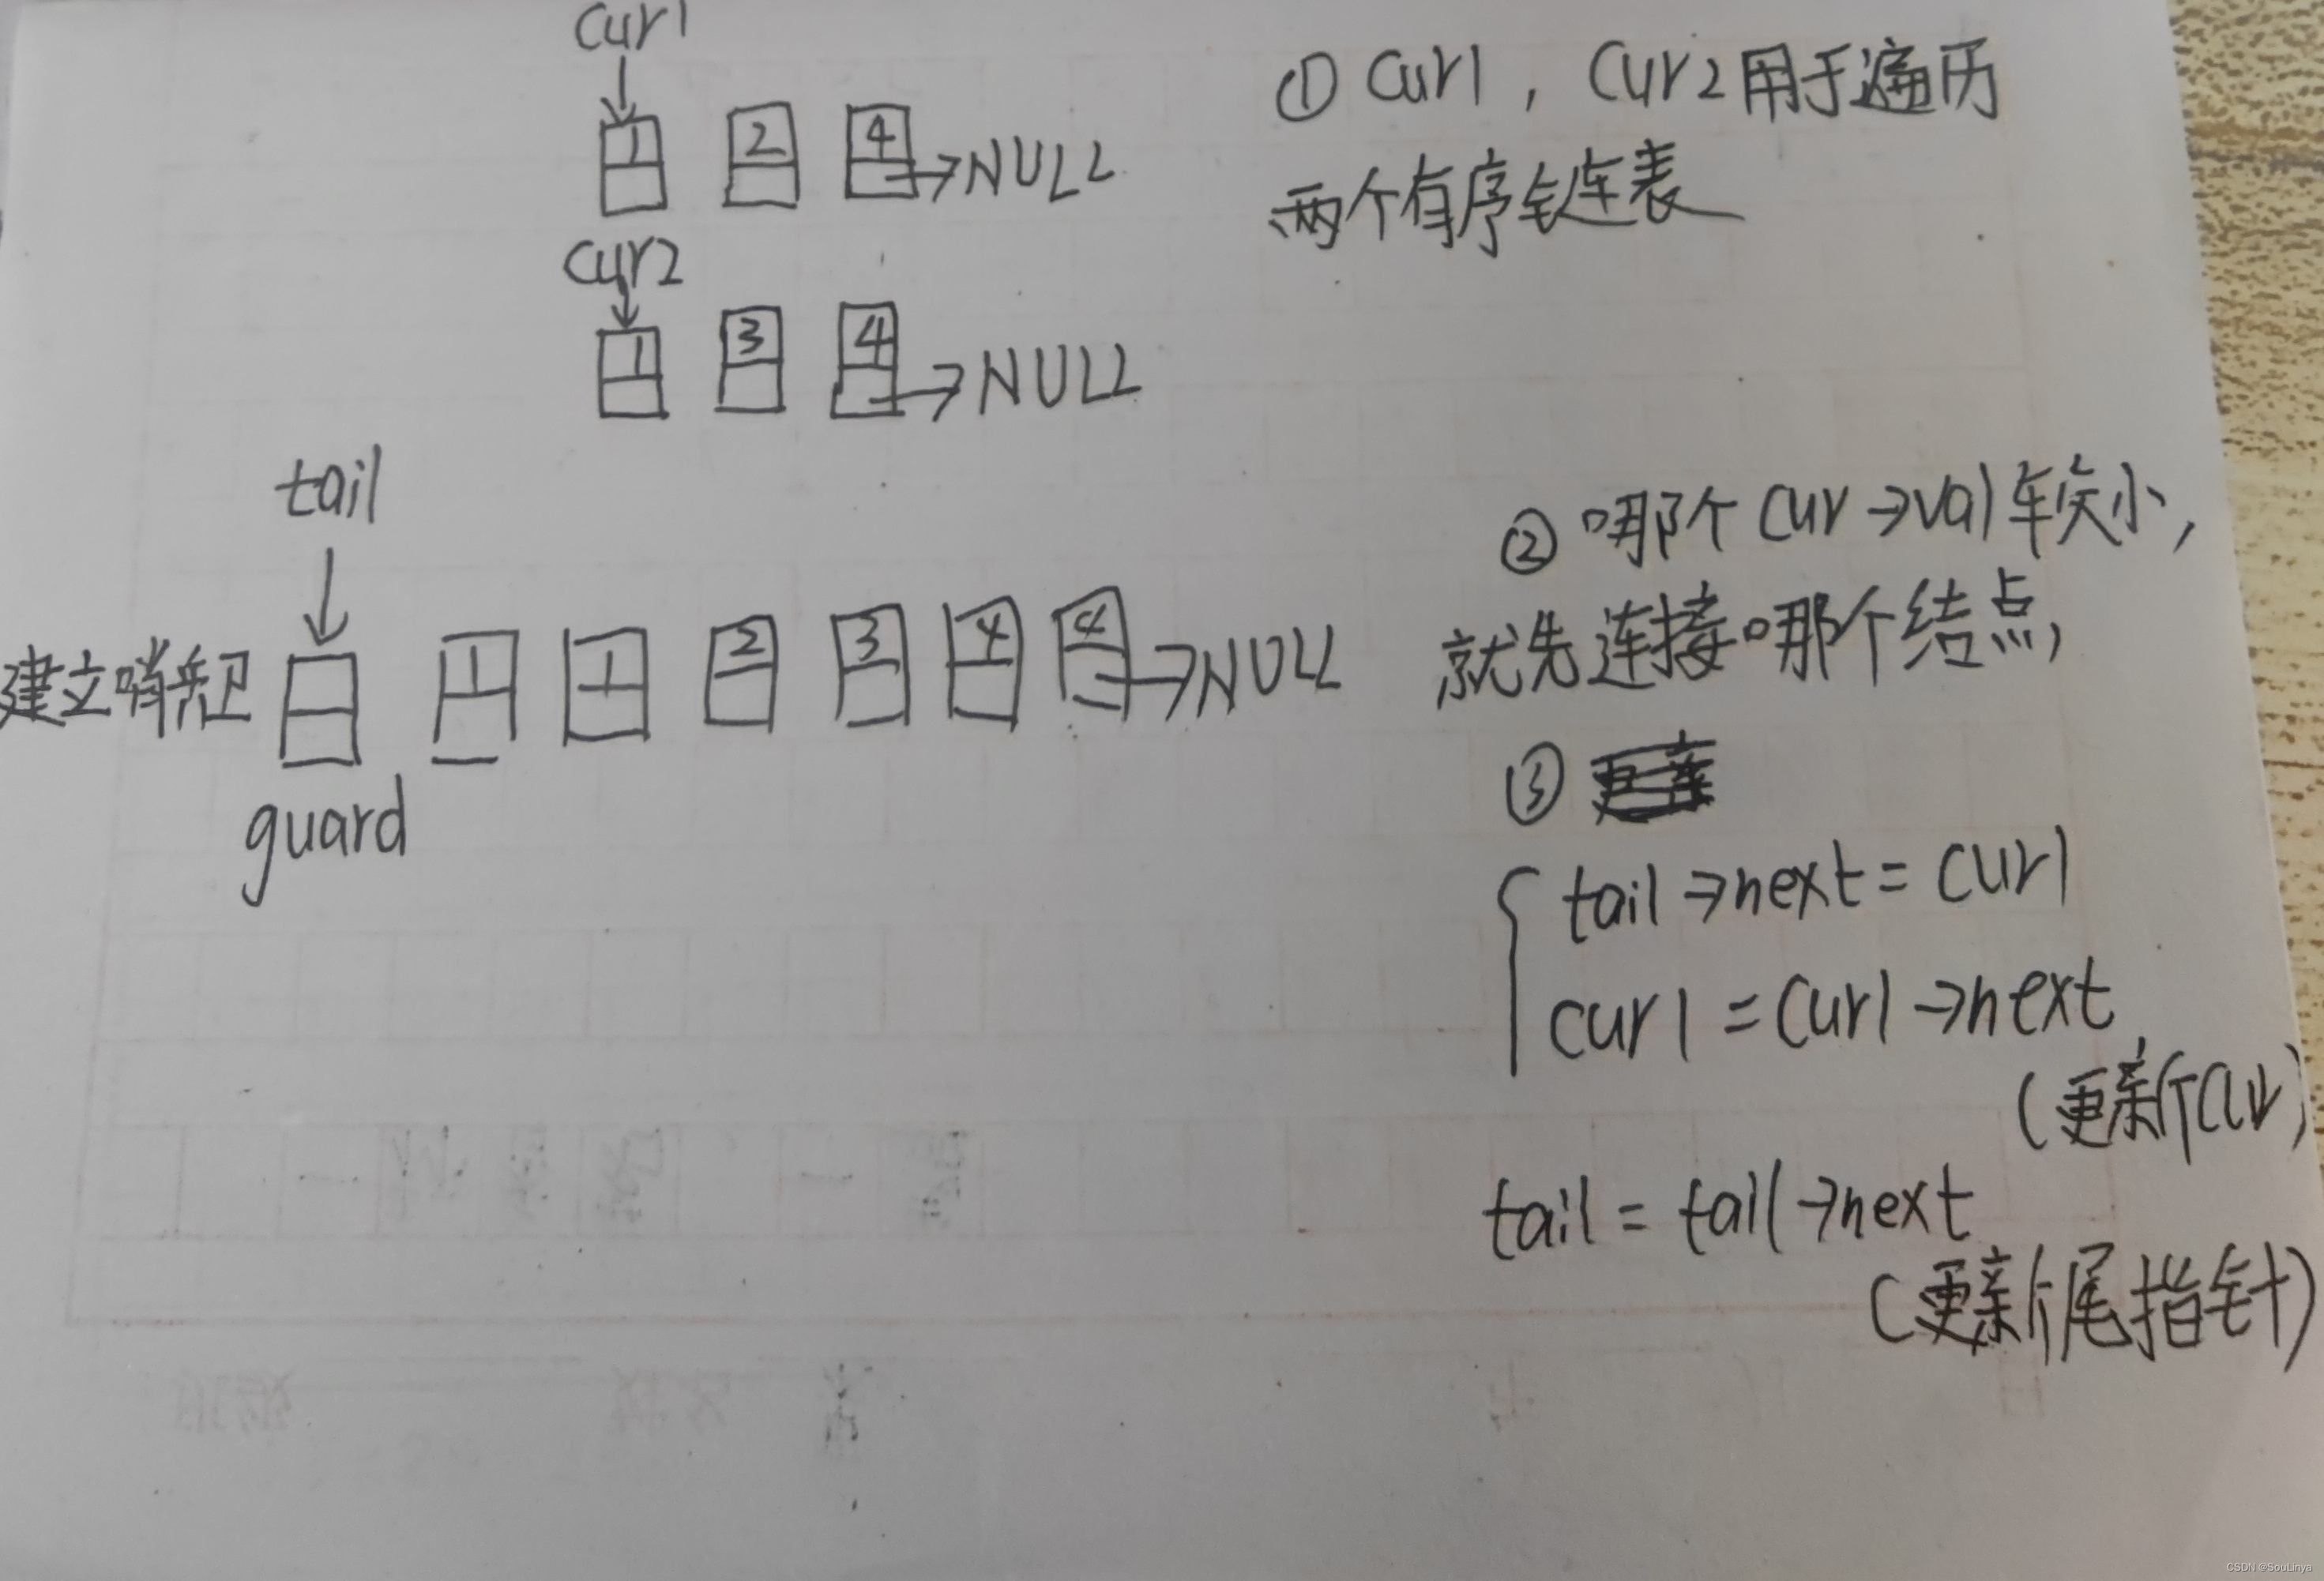 cur1
1 2 4 →NULL
cur2
1 3 4 →NULL
tail
建立哨兵卫 1 1 2 3 4 4 →NULL
guard
① cur1，cur2用于遍历
两个有序链表
② 哪个cur→val较小，
就先连接哪个结点，
③
tail→next = cur1
cur1 = cur1→next
（更新cur）
tail = tail→next
（更新尾指针）
CSDN @SouLinya